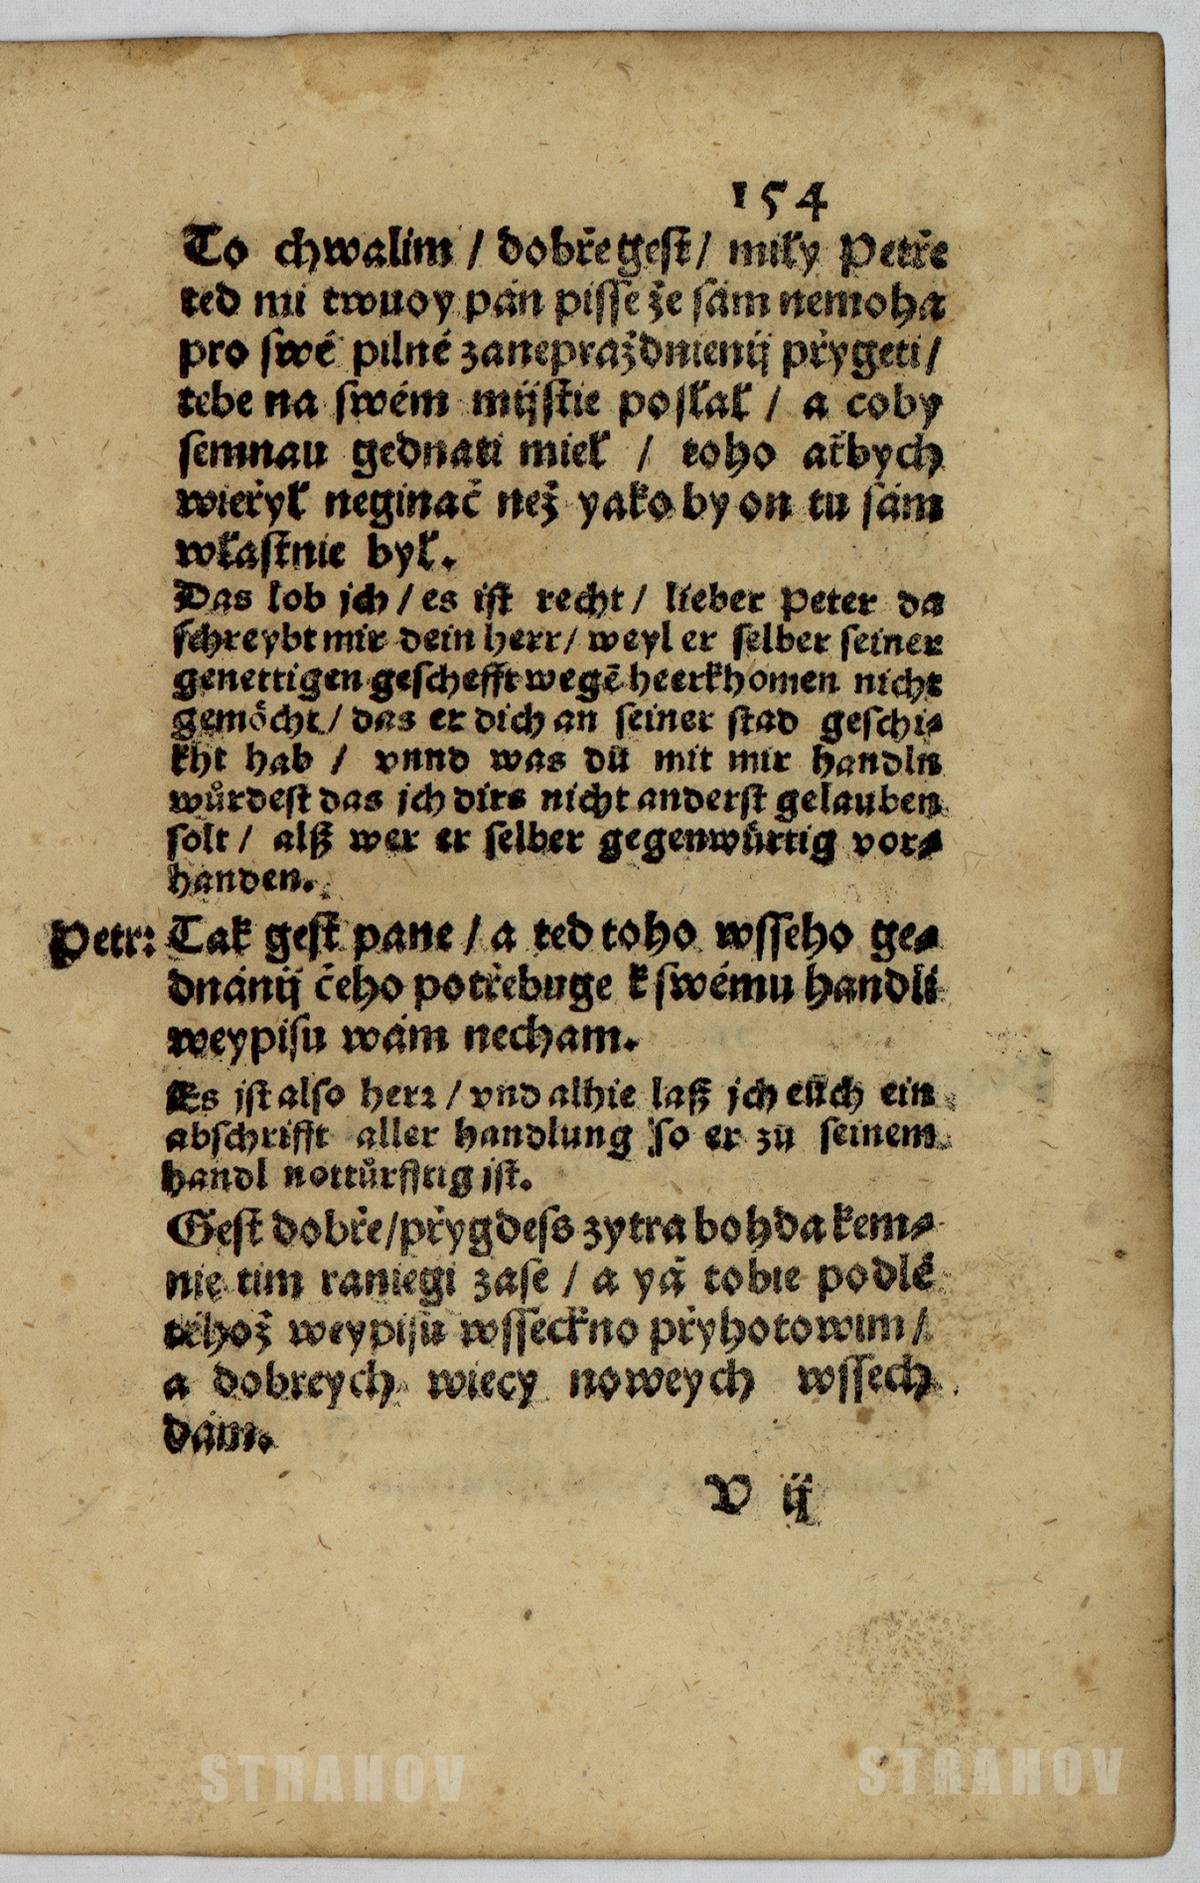 154
To chwalim / dobře gest / miły Petře
ted mi twuoy pán pisse že sám nemoha
pro swé pilné zaneprażdnienij přygeti /
tebe na swém mijstie posłał / a coby
semnau gednati mieł / toho ačbych
wieřył neginač než yako by on tu sám
własťnie był.
Das lob jch / es ist recht / lieber Peter da
schreybt mir dein herr / weyl er selber seiner
genettigen geschefft wegē heerkhomen nicht
gemöcht / das er dich an seiner stad geschi-
kht hab / vnnd was dü mit mir handln
wůrdest das jch dirs nicht anderst gelauben
solt / alß wer er selber gegenwůrtig vor-
handen.
Petr: Tak gest pane / a ted toho wsseho ge-
dnánij čeho potřebuge k swému handli
weypisu wám necham.
Es jst also herr / vnd alhie laß jch eüch ein
abschrifft aller handlung so er zü seinem
handl nottůrfftig jst.
Gest dobře / přygdess zytra bohda kem-
nie tim raniegi zase / a yá tobie podlé
téhož weypisu wsseckno přyhotowim /
a dobreych wiecy noweych wssech
dám.
V ij
STRAHOV STRAHOV